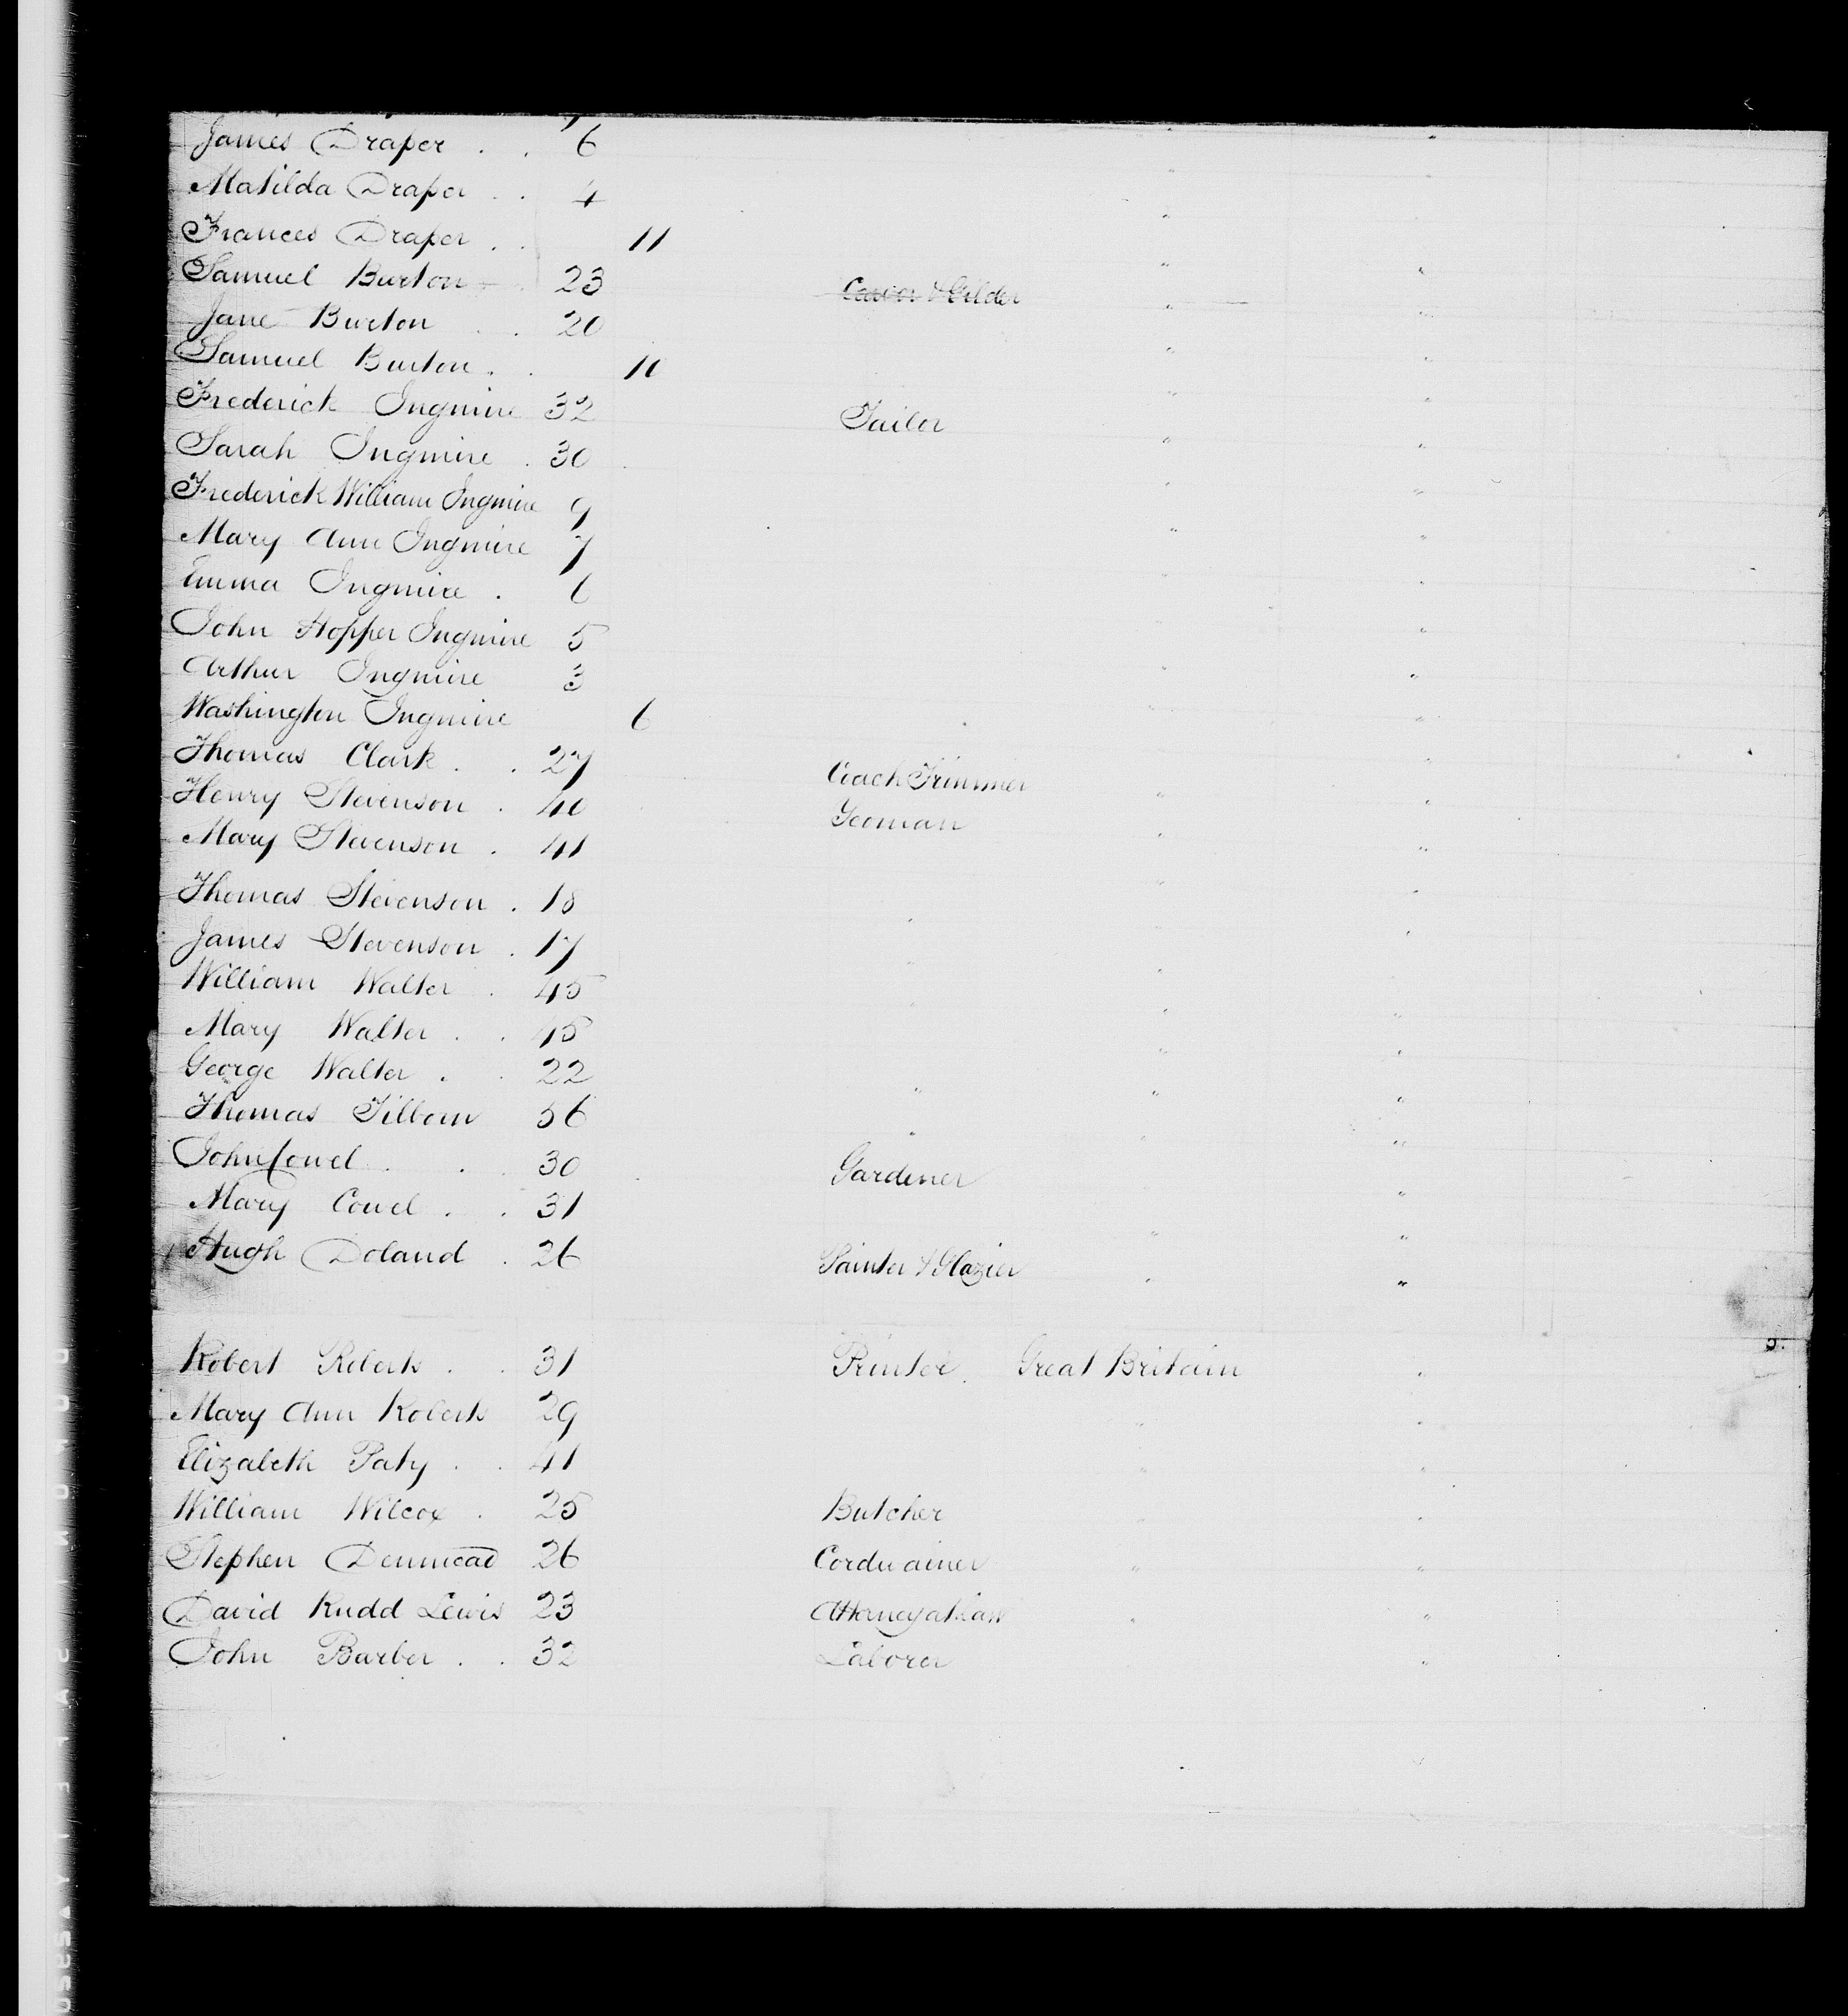 James Draper . . 6 " "
Matilda Draper . . 4 " "
Frances Draper . . 11 "
Samuel Burton 23 Carver & Gilder " "
Jane Burton . . 20 " "
Samuel Burton . . 10 " "
Frederick Ingmire 32 Tailor " "
Sarah Ingmire . 30 " "
Frederick William Ingmire 9 " "
Mary Ann Ingmire 7 " "
Emma Ingmire . 6 " "
John Hopper Ingmire 5 "
Arthur Ingmire 3 " "
Washington Ingmire 6 " "
Thomas Clark . . 27 Coach Trimmer "
Henry Stevenson . 40 Yeoman " "
Mary Stevenson . 41 " "
Thomas Stevenson . 18 " " "
James Stevenson . 17 " "
William Walter . 45 " " "
Mary Walter . . 45 " "
George Walter . . 22 " " "
Thomas Tilborn 56 " " "
John Cowel . . . 30 Gardener
Mary Cowel . . 31 "
Hugh Doland . 26 Painter & Glazier " "
Robert Roberts . . 31 Printer. Great Britain "
Mary Ann Roberts 29 " "
Elizabeth Paty . . 41 " "
William Wilcox . 25 Butcher "
Stephen Denmead 26 Cordwainer " "
David Rudd Lewis 23 Attorney at Law " "
John Barber . . 32 Laborer "